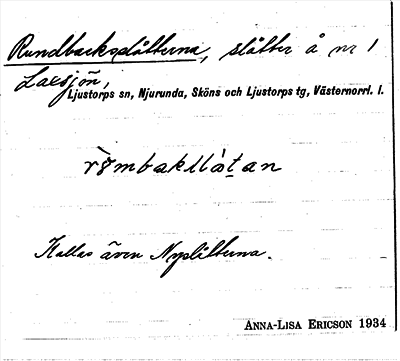 Rundbackslåtterna, slåtter å nr 1
Laxsjön,
Ljustorps sn, Njurunda, Sköns och Ljustorps tg, Västernorrl. l.
Kallas även Nyslåtterna.
ANNA-LISA ERICSON 1934